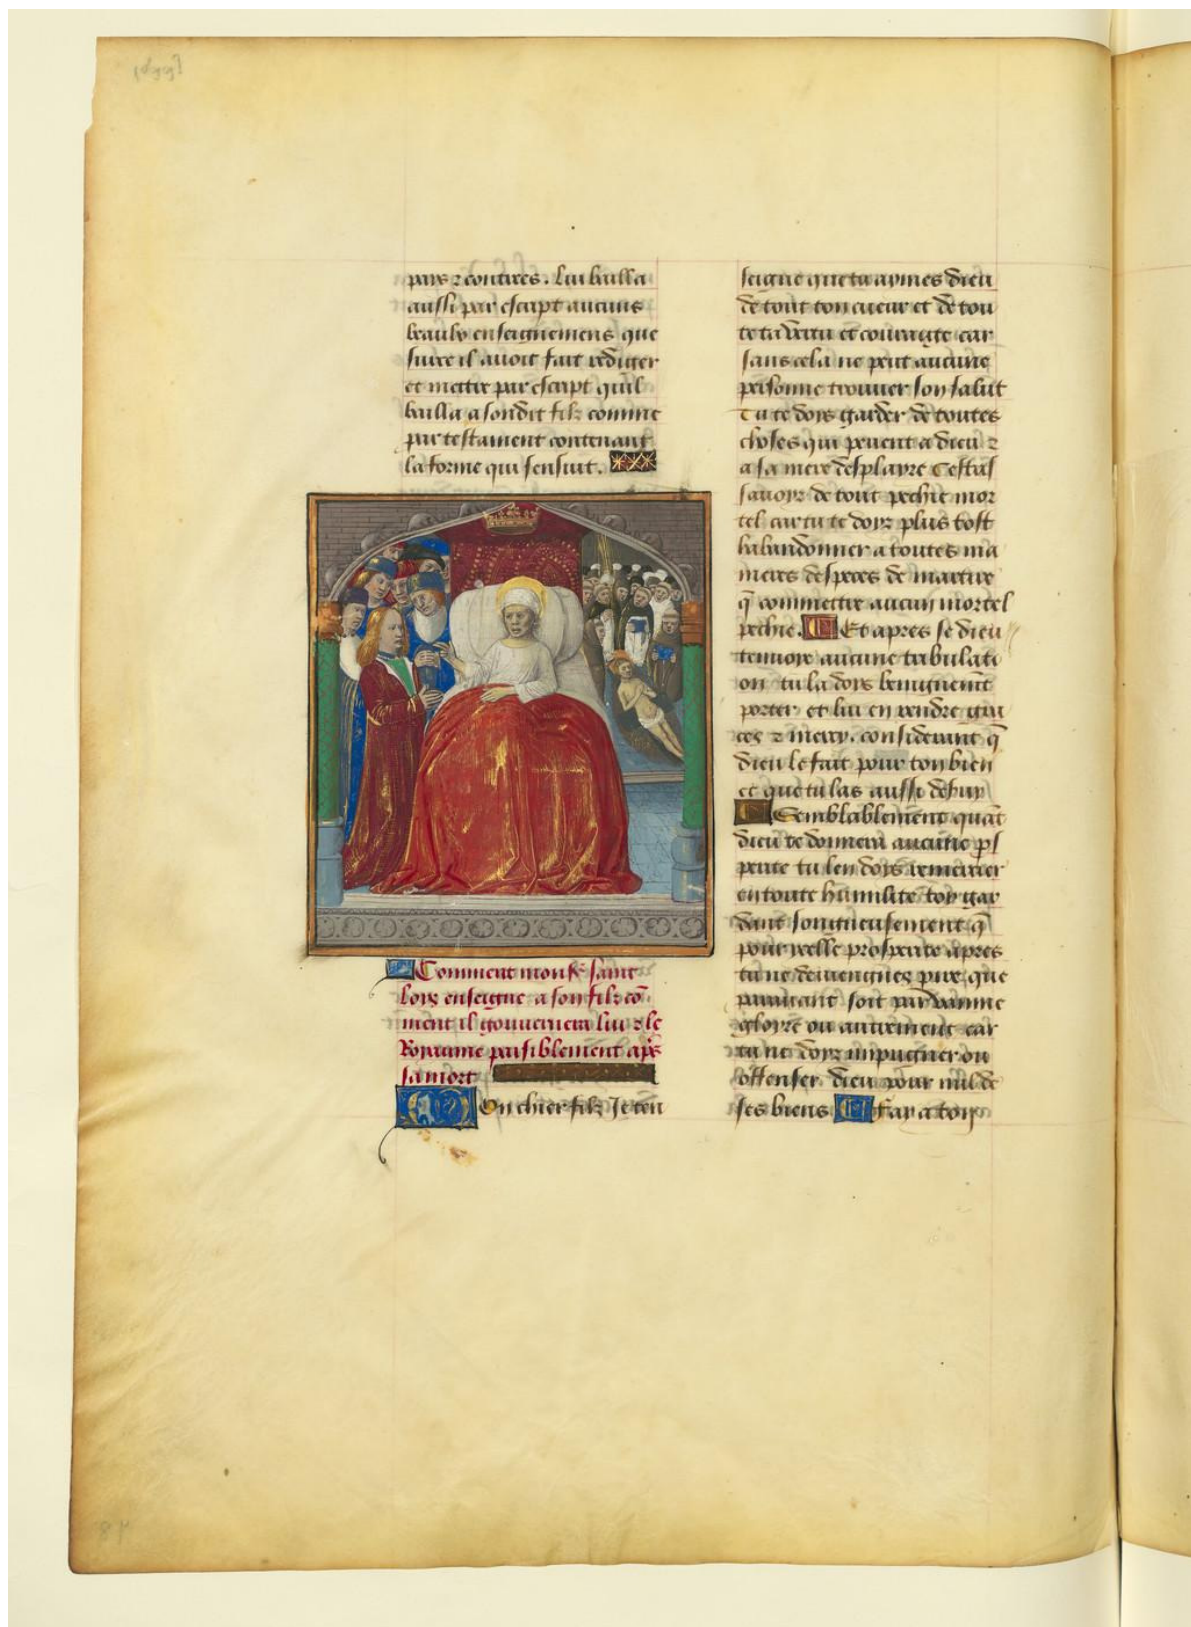 pays ⁊ contrees. Lui bailla
aussi par escript aucuns
beaulx enseignemens que
suire il auoit fait rediger
et mettre par escript quil
bailla a sondit filz comme
par testament contenant
la forme qui sensuit.
Comment monsr saint
loys enseigne a son filz cō-
ment il gouuernera lui ⁊ le
Royaume paisiblement aps
sa mort
On chier filz Je ten
seigne que tu aymes dieu
de tout ton cueur et de tou
te ta vertu et couraige car
sans cela ne peut aucune
personne trouuer son salut
Tu te doys garder de toutes
choses qui peuent a dieu ⁊
a sa mere desplayre Cestas
sauoyr de tout pechie mor
tel car tu te doys plus tost
habandonner a toutes ma
nieres despeces de martire
q̄ commettre aucun mortel
pechie. Et apres se dieu
tenuoie aucune tribulati
on tu la doys benignemt
porter et lui en rendre gra
ces ⁊ mercy. considerant q̄
dieu le fait pour ton bien
et que tu las aussi desuy
Semblablement quāt
dieu te donnera aucune ps
perite tu len doys remercier
en toute humilite toy gar
dant songneusement q̄
pour icelle prosperite apres
tu ne deuiengnes pire que
parauant soit par vainne
gloyre ou autrement car
tu ne doys impugner ou
offenser dieu pour nul de
ses biens fay a toy